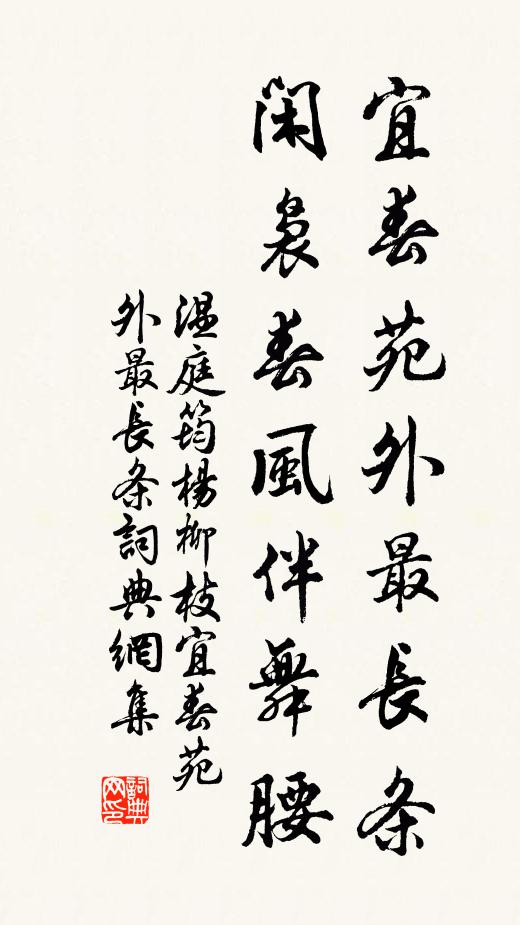 宜春苑外最長条
閑裊春風伴舞腰
温庭筠楊柳枝宜春苑
外最長条詞典網集
詞典网印